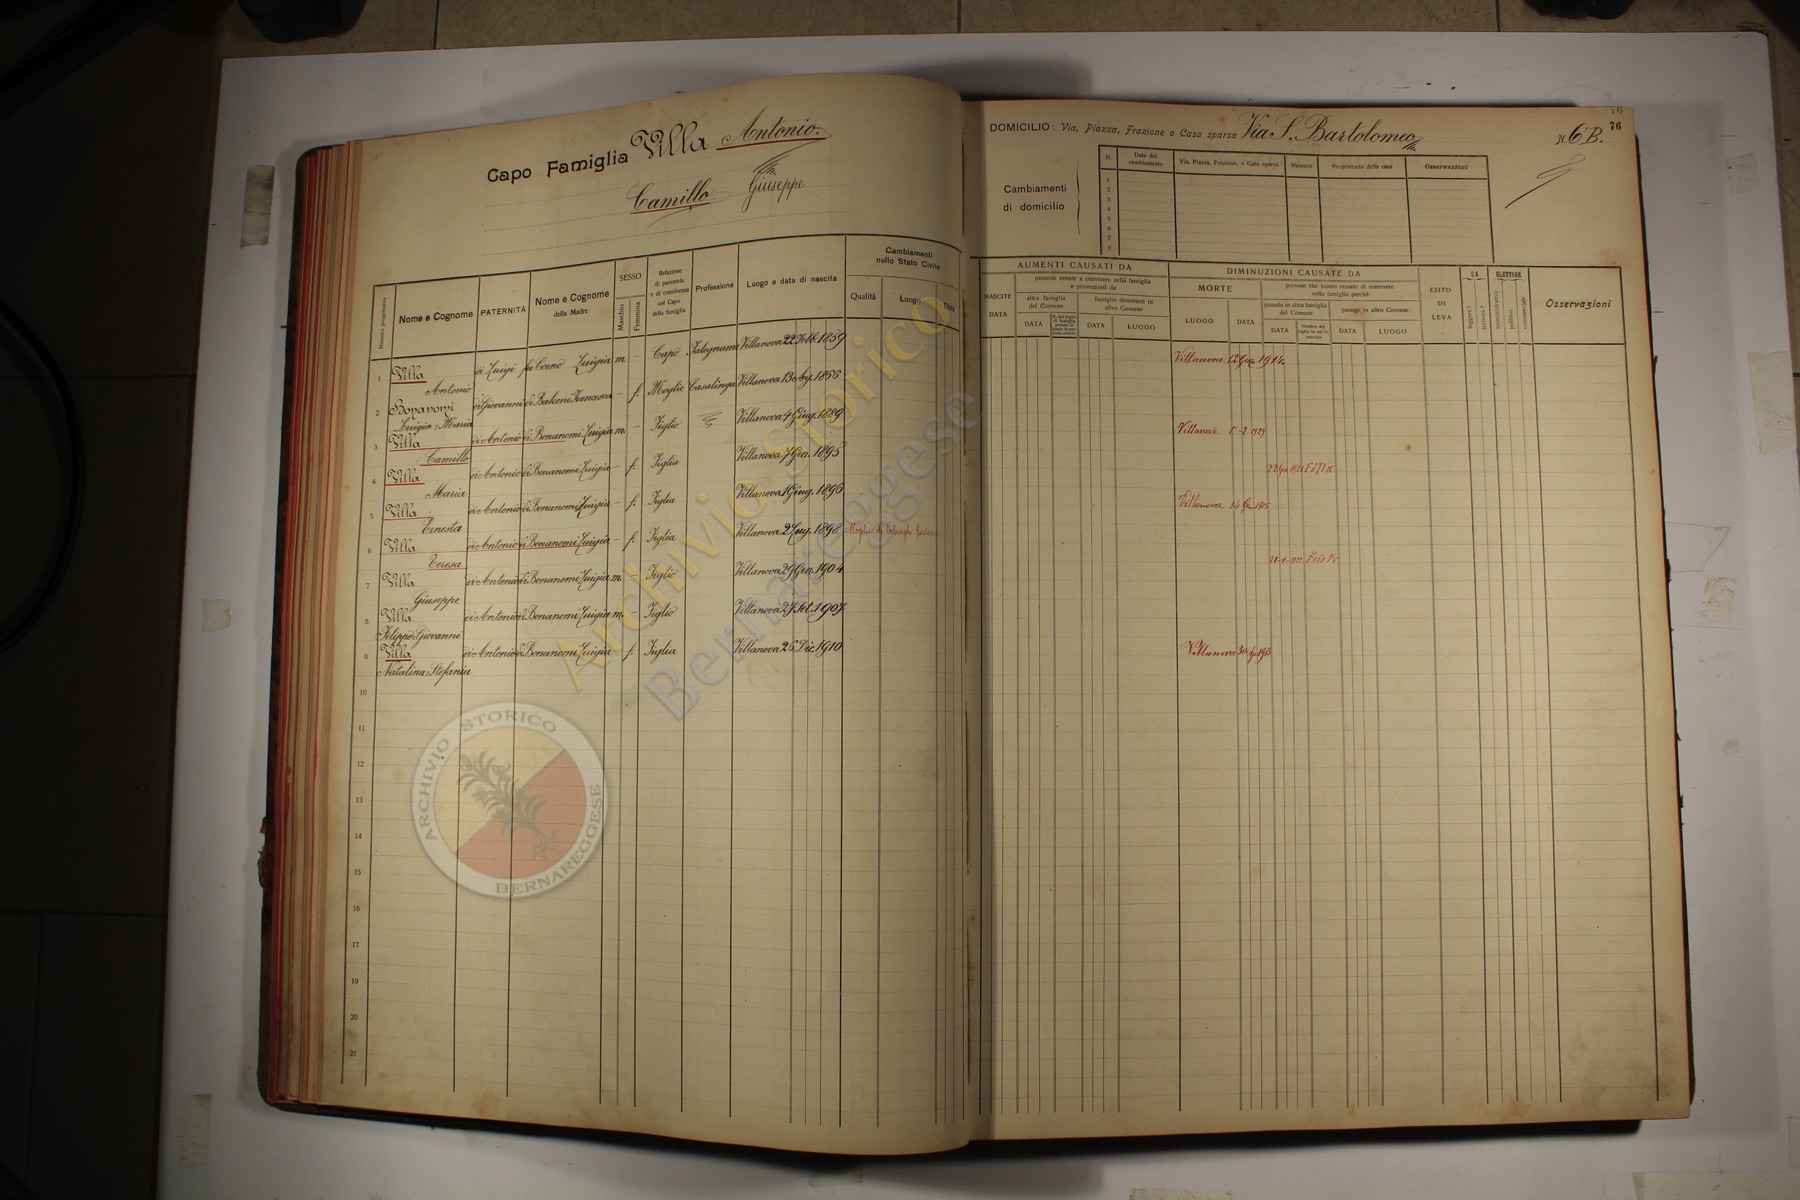 Capo Famiglia Villa Antonio.
Camillo Giuseppe
Nome e Cognome PATERNITÀ Nome e Cognome della Madre SESSO Maschio Femmina Relazione di parentela o di convivenza col Capo della famiglia Professione Luogo e data di nascita Cambiamenti nello Stato Civile Qualità Luogo Data
1 Villa Antonio di Luigi fu Corno Luigia m. - Capo Falegname Villanova 22 Feb. 1859
2 Bonanomi Luigia Maria di Giovanni di Balconi Francesca - f. Moglie Casalinga Villanova 13 Ag. 1855
3 Villa Camillo di Antonio di Bonanomi Luigia m. - Figlio Villanova 4 Giug. 1889
4 Villa Maria di Antonio di Bonanomi Luigia - f. Figlia Villanova 7 Gen. 1895
5 Villa Ernesta di Antonio di Bonanomi Luigia - f. Figlia Villanova 1 Giug. 1896
6 Villa Teresa di Antonio di Bonanomi Luigia - f. Figlia Villanova 2 Lug. 1898 Moglie di
7 Villa Giuseppe di Antonio di Bonanomi Luigia m. - Figlio Villanova 29 Gen. 1904
8 Villa Filippo Giovanni di Antonio di Bonanomi Luigia m. - Figlio Villanova 27 Set. 1907
9 Villa Natalina Stefania di Antonio di Bonanomi Luigia - f. Figlia Villanova 26 Dic. 1910
10
11
12
13
14
15
16
17
18
19
20
21
ARCHIVIO STORICO BERNAREGGESE
Archivio Storico
Bernareggese
76
DOMICILIO: Via, Piazza, Frazione o Casa sparsa Via S. Bartolomeo N. 6 B.
Cambiamenti di domicilio
N. Data del cambiamento Via, Piazza, Frazione, o Casa sparsa Numero Proprietario della casa Osservazioni
1
2
3
4
5
6
7
8
AUMENTI CAUSATI DA
NASCITE DATA
persone venute a convivere nella famiglia e provenienti da
altra famiglia del Comune DATA
famiglie dimoranti in altro Comune DATA LUOGO
DIMINUZIONI CAUSATE DA
MORTE LUOGO DATA
persone che hanno cessato di convivere colla famiglia perchè
passate in altra famiglia del Comune DATA
passate in altro Comune DATA LUOGO
ESITO DI LEVA
SA leggere? scrivere?
ELETTORE amministrativo politico commerciale
Osservazioni
Villanova 12 Gen. 1914.
Villanova 1-2-1929
Villanova 14
Villanova 30